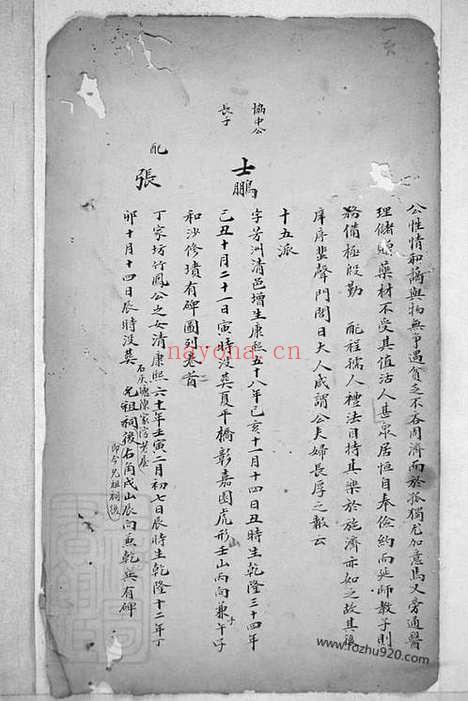 公性情和藹與物無爭遇貧乏不吝周濟而於孤獨尤加意焉又旁通醫
理儲藥材不受其值沽人甚衆居恒自奉儉約而延師教子則
務備極殷勤 配程孺人禮法自持其樂於施濟亦如之故其後
庠序蜚聲門閭日大人咸謂公夫婦長厚之報云
十五派
協中公
長子
士鵬
字芳洲清邑增生康熙五十八年己亥十一月十四日丑時生乾隆三十四年
己丑十月二十一日寅時沒葬夏平橋彰嘉園虎形壬山丙向兼子午
和沙修墳有碑圖列卷首
配
張
丁家坊竹鳳公之女清康熙六十一年壬寅二月初七日辰時生乾隆十二年丁
卯十月十四日辰時沒葬
石灰塘陳家宕老屋
允祖祠後右角戌山辰向兼乾巽有碑
即今允祖祠後
nayona.cn
www.fozhu920.com